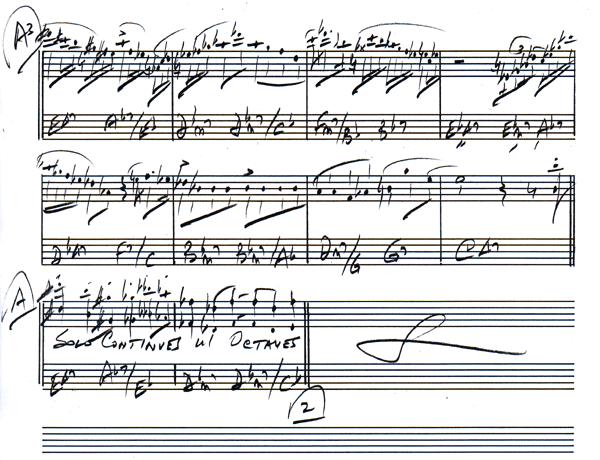 A3
E♭7 A♭7/E♭ D♭m7 D♭m7/C♭ Fm7/B♭ B♭7 E♭Δ7 E♭m7 A♭7
D♭Δ7 F7/C B♭m7 B♭m7/A♭ Dm7/G G7 CΔ7
A
SOLO CONTINUES W/ OCTAVES
E♭7 A♭7/E♭ D♭m7 D♭m7/C♭
2